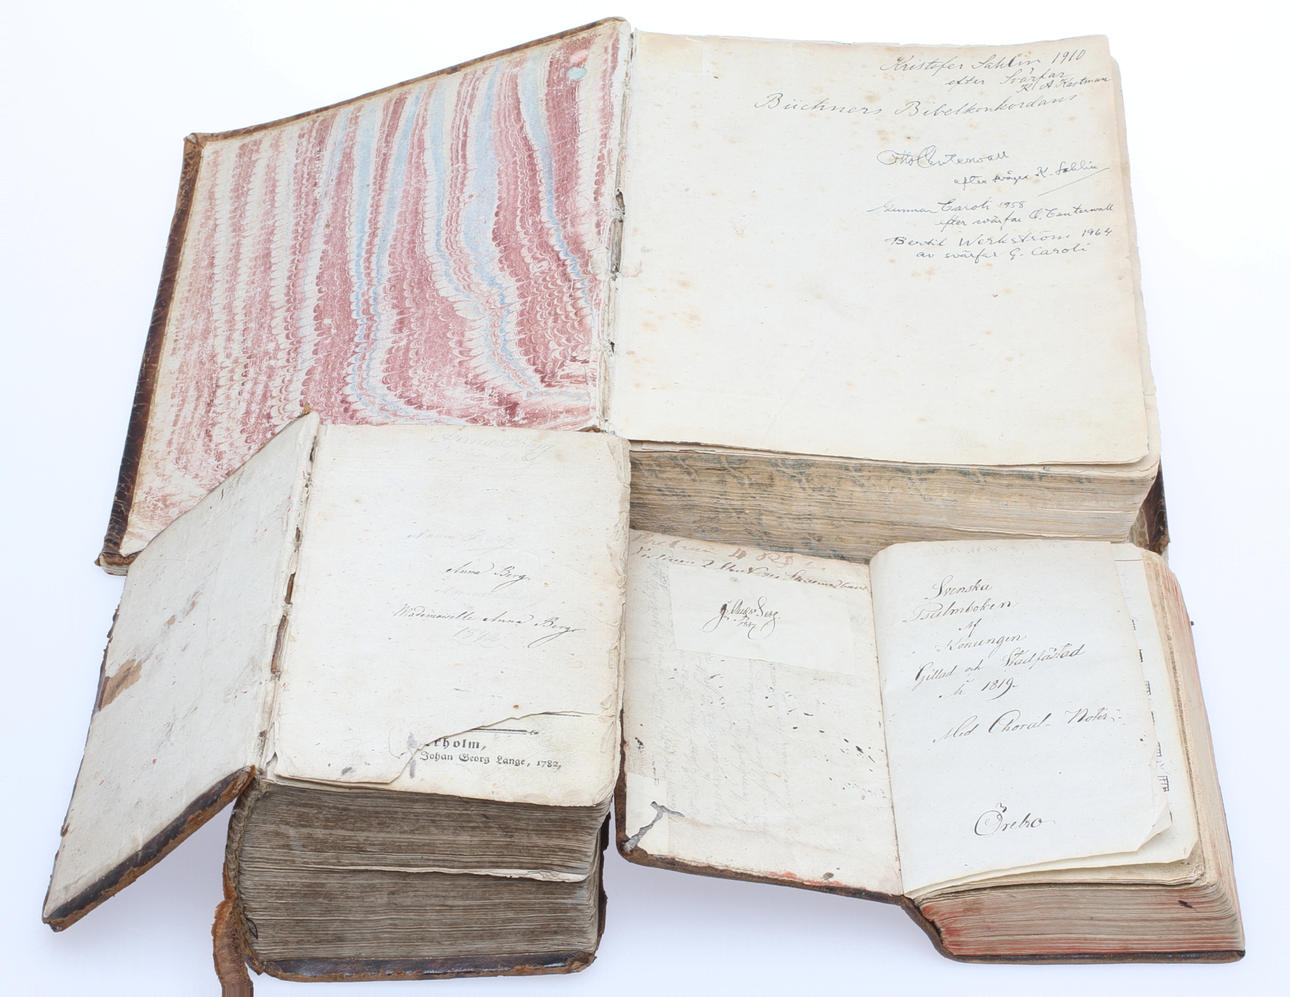 Kristofer Sahlin 1910
efter Svärfar
K. A. Kastman
Büchners Bibelkonkordans
Centerwall
efter svåger K. Sahlin
Gunnar Caroli 1958
efter svärfar O. Centerwall
Bertil Werkström 1964
av svärfar G. Caroli
Anna Berg
Mademoiselle Anna Berg
rholm,
Johan Georg Lange, 1782,
Svenska
Psalmboken
Af
Konungen
Gillad och Stadfästad
År 1819.
Med Choral-Noter.
Örebro